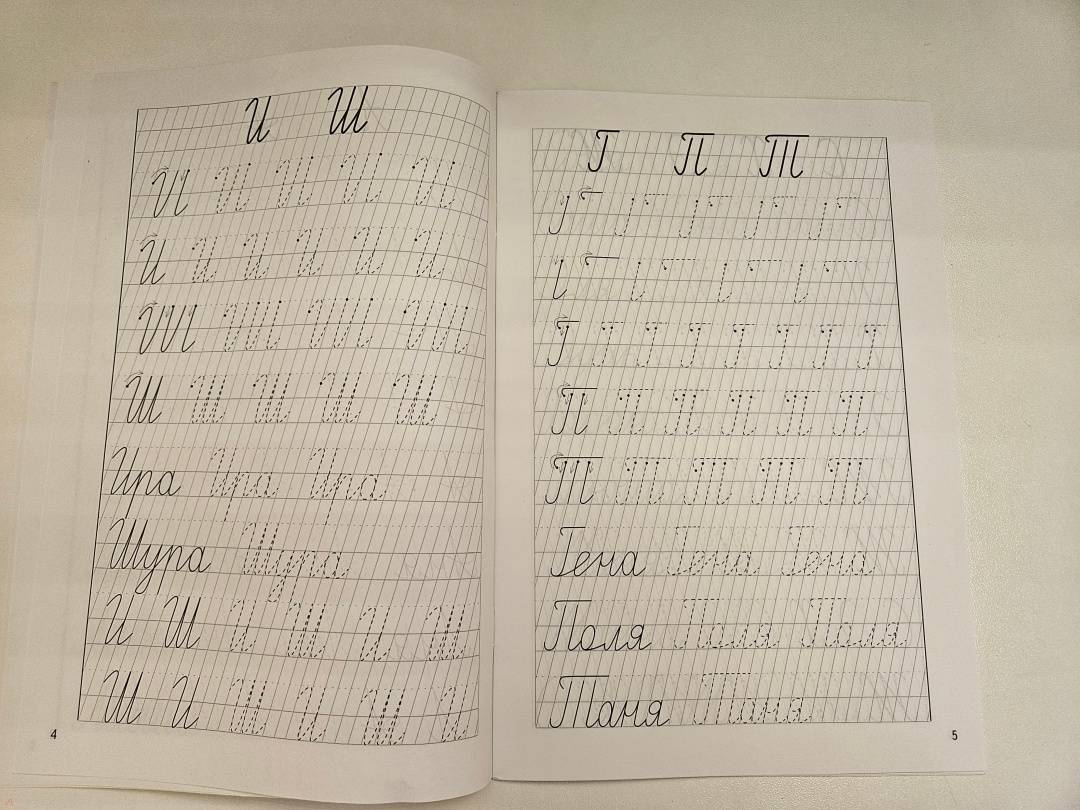 И Ш
И И И И И
И И И И И И
Ш Ш Ш Ш
Ш Ш Ш Ш Ш
Ира Ира Ира
Шура Шура
И Ш И Ш И Ш
Ш И Ш И Ш И
4
Г П Т
Г Г Г Г Г
Г Г Г Г
Г Г Г Г Г Г Г Г
П П П П П П П
Т Т Т Т Т
Гена Гена Гена
Поля Поля Поля
Таня Таня
5